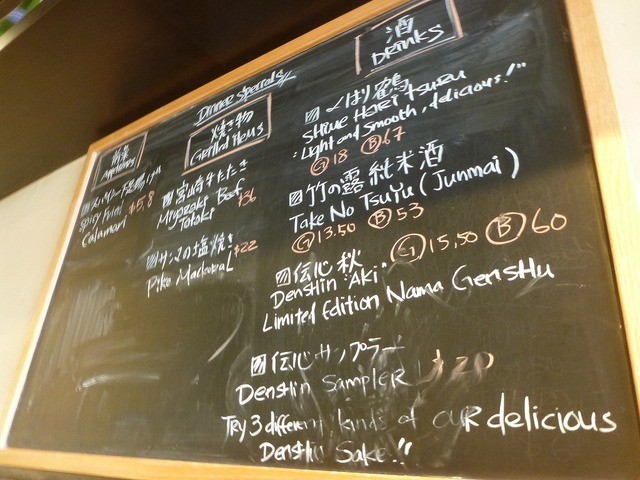 Dinner Specials
前菜
Appetizers
Spicy Fried $5.8
Calamari
焼き物
Grilled Items
宮崎牛たたき
Miyazaki Beef $36
Tataki
サンマの塩焼き $22
Pike Mackeral
酒
Drinks
しばり鶴
Shiwe Hari Tsuru
"Light and Smooth, delicious!"
G 18 B 67
竹の露 純米酒
Take No Tsuyu (Junmai)
G 13.50 B 53
伝心 秋 G 15.50 B 60
Denshin "Aki"
Limited Edition Nama Genshu
伝心サンプラー
Denshin Sampler $20
Try 3 different kinds of our delicious
Denshin Sake!!